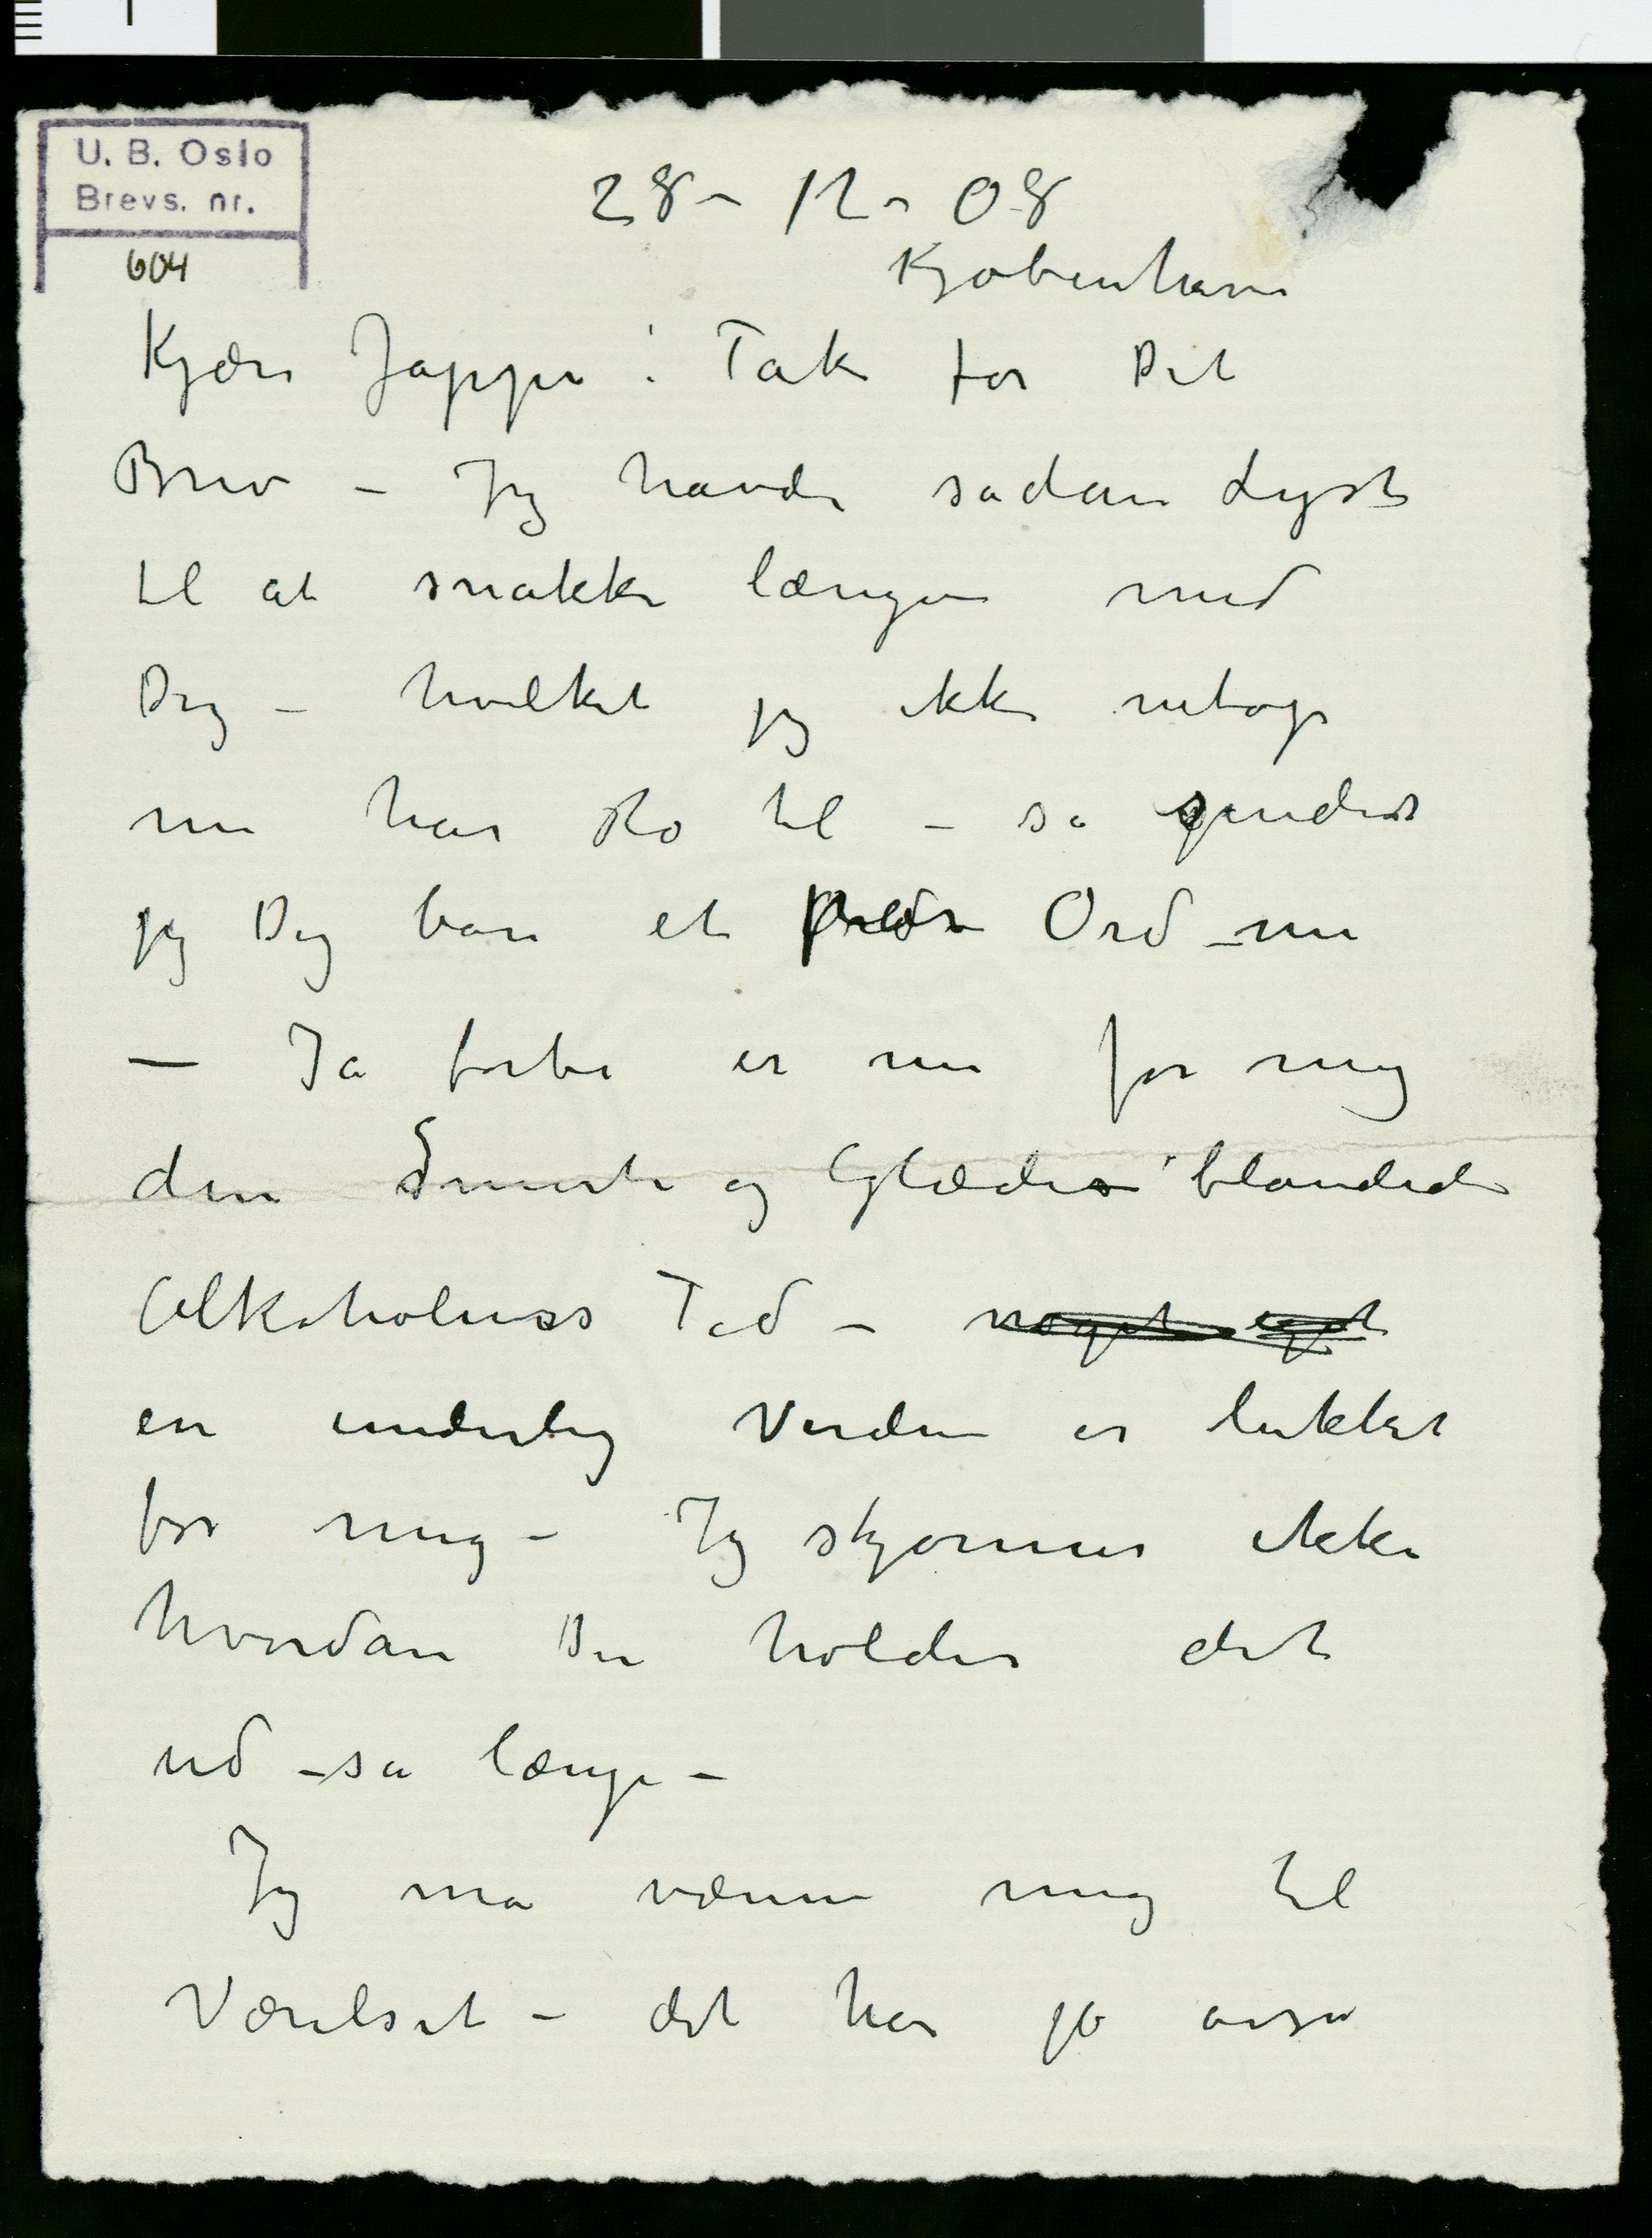 U. B. Oslo
Brevs. nr.
604
28 – 12 – 08
Kjøbenhavn
Kjære Jappe! Tak for Dit
Brev – Jeg havde sådan Lyst
til at snakke længe med
Dig – hvilket jeg ikke netop
nu har Ro til – så sender
jeg Dig bare et par Ord – nu
– Ja forbi er nu for mig
den Smerte og Glædes blandede
Alkoholens Tid – noget eget
en underlig Verden er lukket
for mig – Jeg skjønner ikke
hvordan Du holder det
ud – så længe –
Jeg må vænne mig til
Værelset – det har jo også